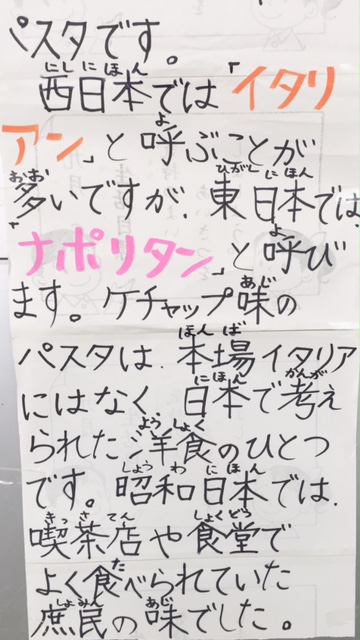 パスタです。
西日本では「イタリ
アン」と呼ぶことが
多いですが、東日本では、
「ナポリタン」と呼び
ます。ケチャップ味の
パスタは、本場イタリア
にはなく、日本で考え
られた洋食のひとつ
です。昭和日本では、
喫茶店や食堂で
よく食べられていた
庶民の味でした。